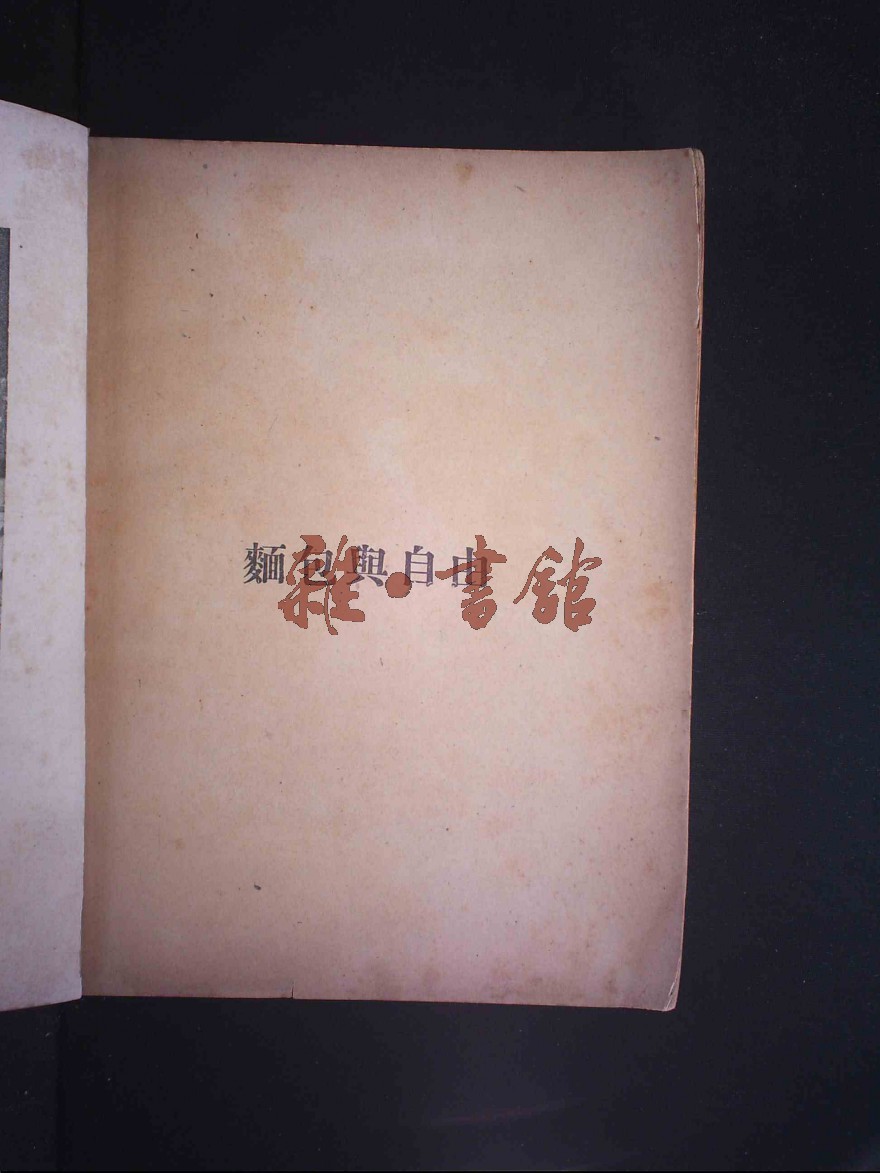 麵包與自由
雜·書館